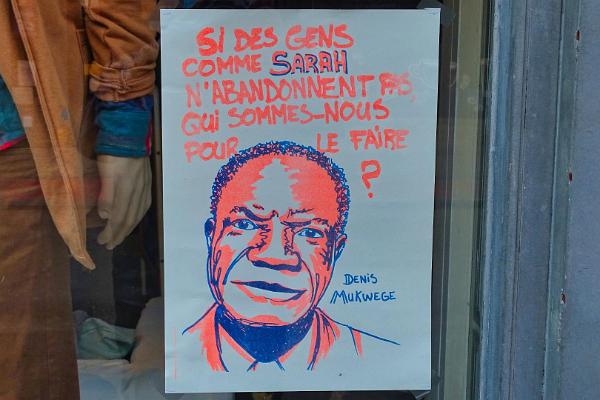 SI DES GENS
COMME SARAH
N'ABANDONNENT PAS,
QUI SOMMES-NOUS
POUR LE FAIRE
?
DENIS
MUKWEGE